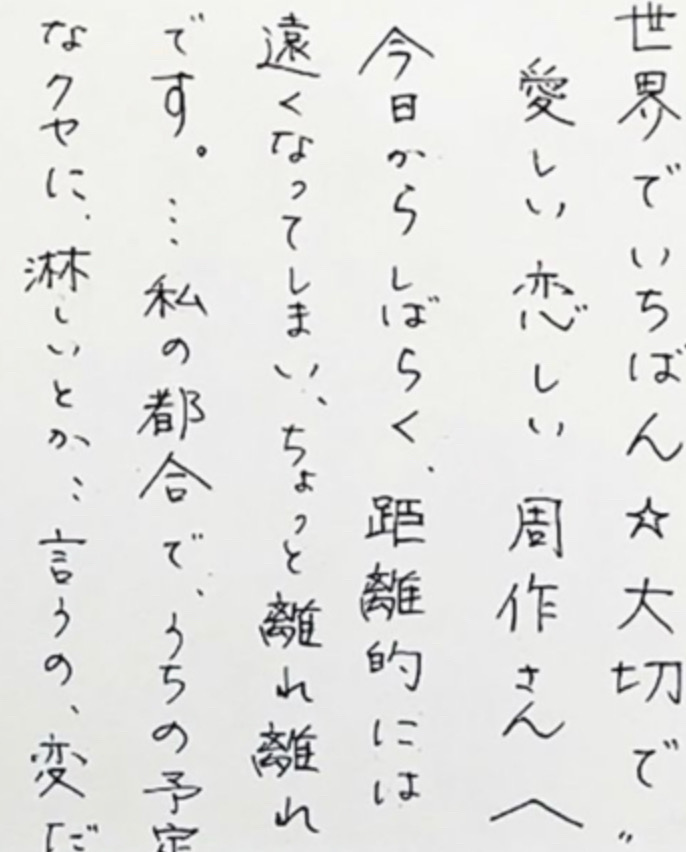 世界でいちばん☆大切で〃
愛しい恋しい周作さんへ
今日からしばらく、距離的には
遠くなってしまい、ちょっと離れ離れ
です。…私の都合で、うちの予定
なクセに、淋しいとか…言うの、変だ